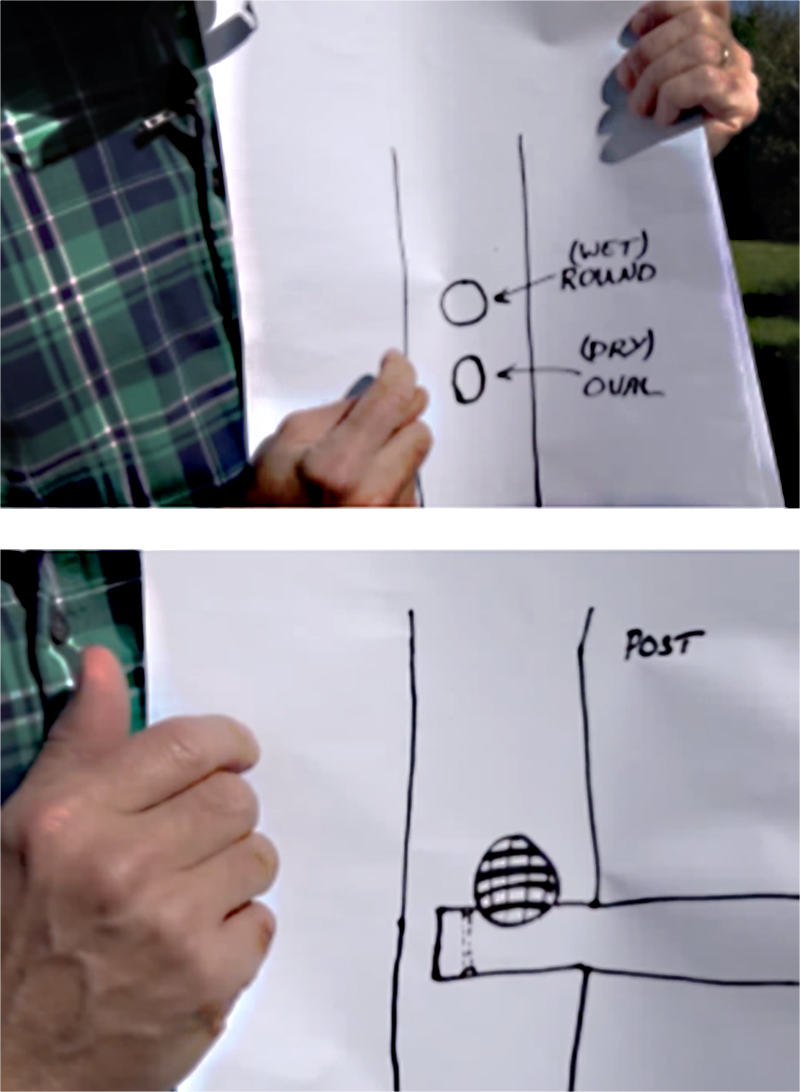 (WET)
ROUND
(DRY)
OVAL
POST